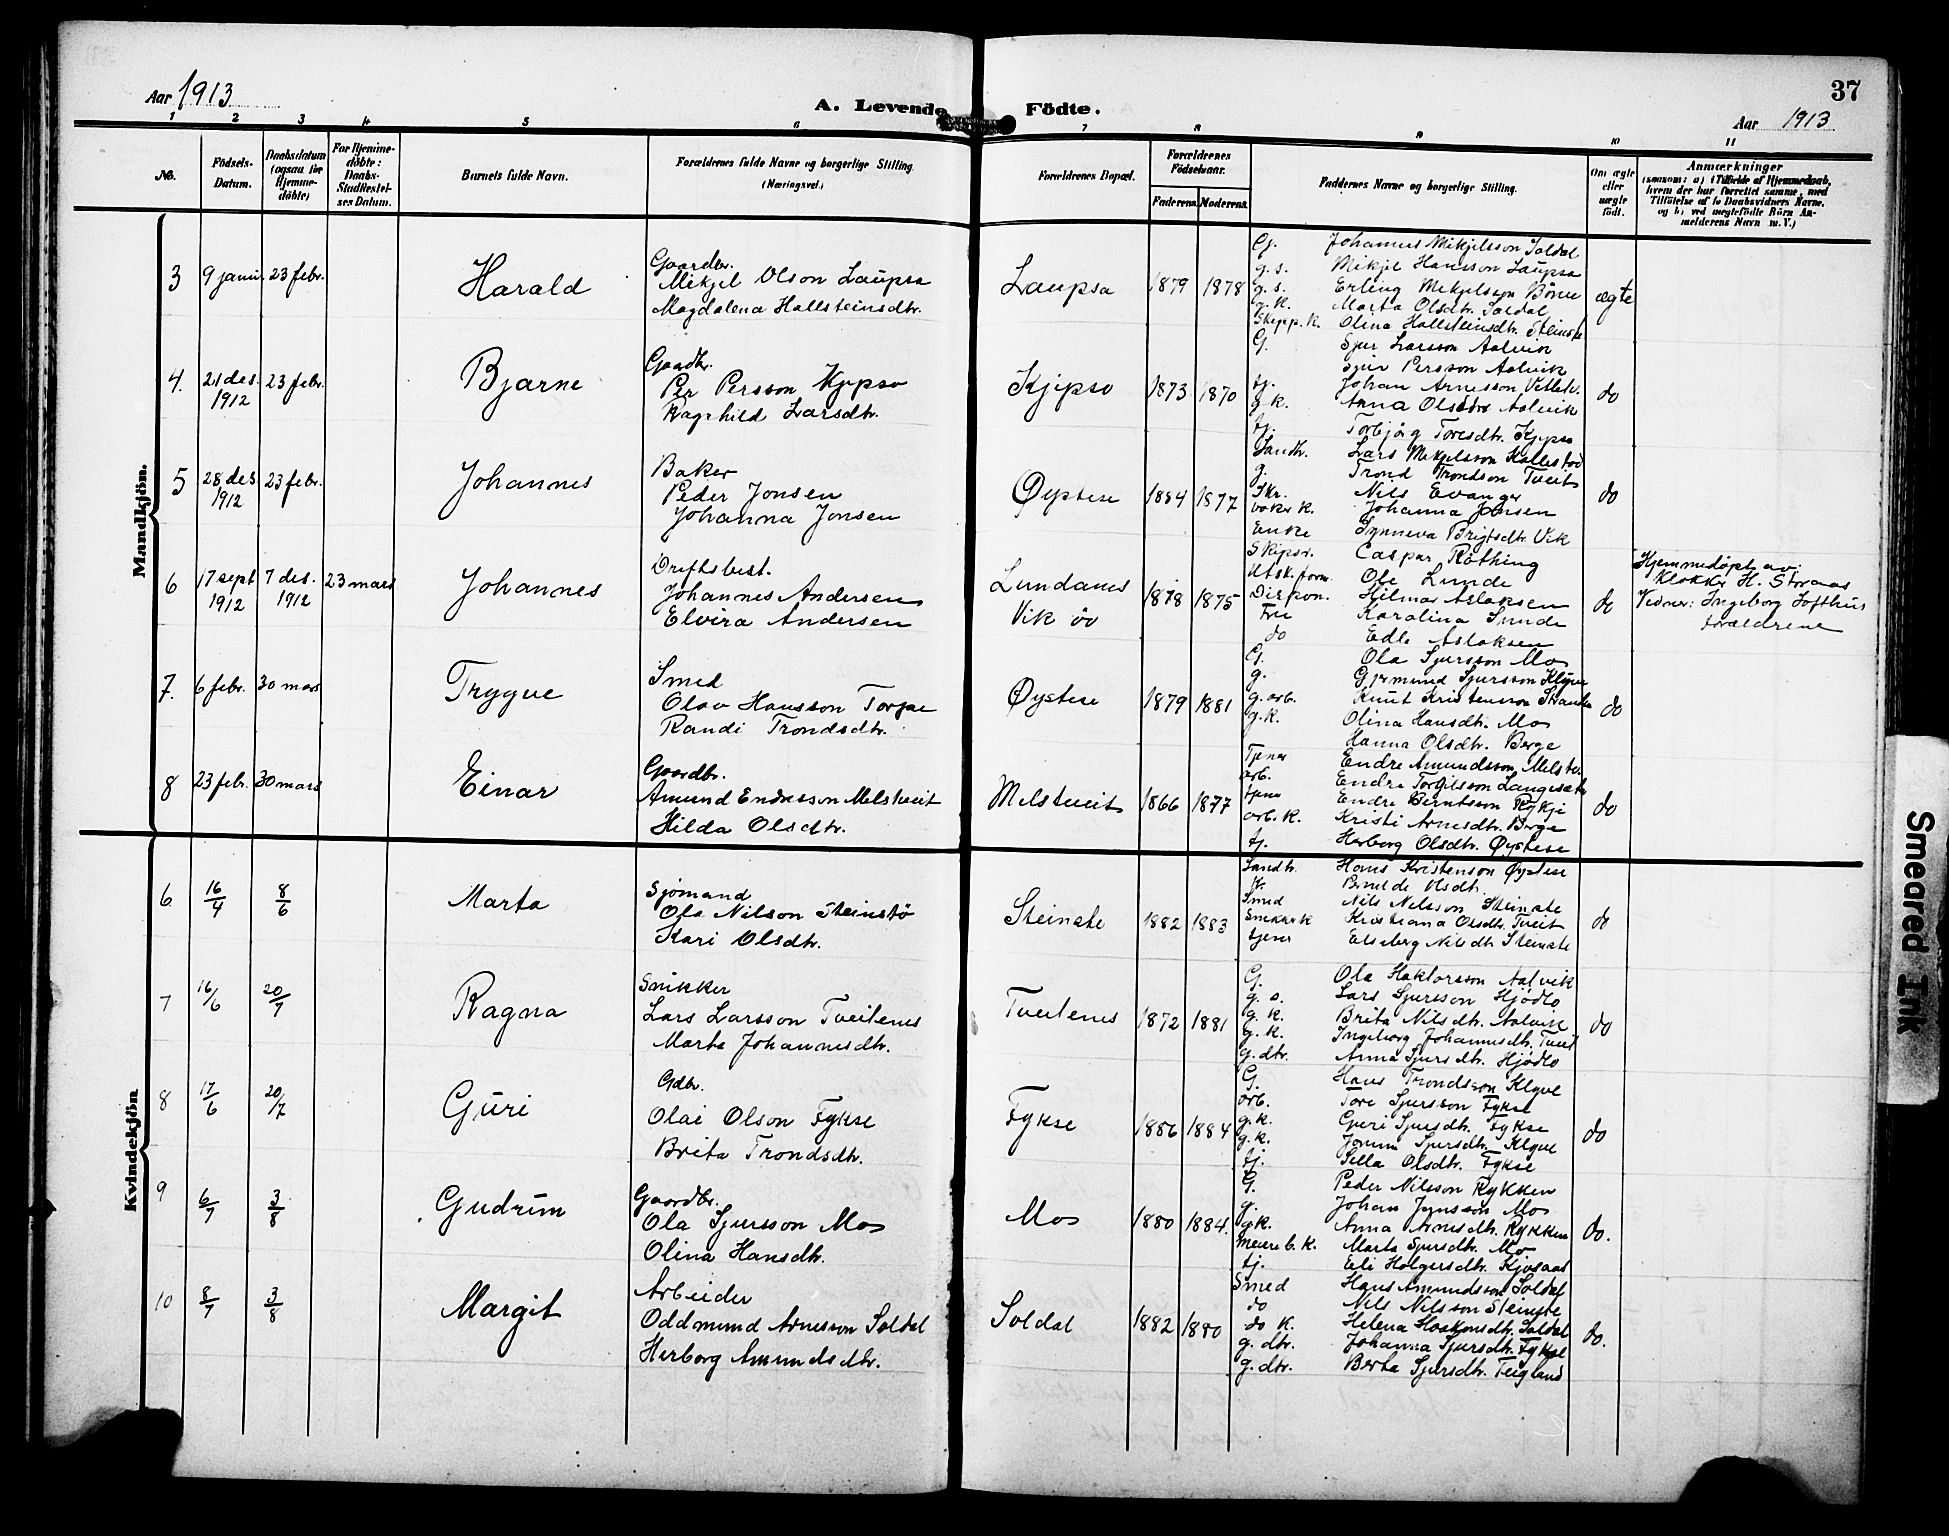 37
Aar 1913
A. Levende Födte.
Aar 1913
1 2 3 4 5 6 7 8 9 10 11
No.
Födsels-Datum.
Daabsdatum (ogsaa for Hjemme-döbte)
For Hjemme-döbte: Daabs-Stadfæstel-ses Datum.
Barnets fulde Navn.
Forældrenes fulde Navne og borgerlige Stilling. (Næringsvei.)
Forældrenes Bopæl.
Forældrenes Födselsaar.
Faderens. Moderens.
Faddernes Navne og borgerlige Stilling.
Om ægte eller uægte födt.
Anmærkninger
(saasom: a) i Tilfælde af Hjemmedaab, hvem der har forrettet samme, med Tilföielse af to Daabsvidners Navne, og b) ved uægtefödte Börn Anmelderens Navn m. V.)
Mandkjön.
3 9 janu. 23 febr. Harald
Gaardbr.
Mikjel Olson Laupsa
Magdalena Hallsteinsdtr.
Laupsa 1879 1878
G. Johannes Mikjelsson Soldal
g.s. Mikjel Hansson Laupsa
g.s. Erling Mikjelsson Börve
g.k. Marta Olsdtr. Soldal
Skipp.k. Olina Hallsteinsdtr. Steinstø
ægte
4. 21 des. 1912 23 febr. Bjarne
Gaardbr.
Per Persson Kjepso
Ragnhild Larsdtr.
Kjepso 1873 1870
G. Sjur Larsson Aalvik
Sjur Persson Aalvik
tj. Johan Arnesson
g.k. Anna Olsdtr Aalvik
tj. Torbjörg Toresdtr. Kjepso
do
5 28 des 1912 23 febr. Johannes
Baker
Peder Jonsen
Johanna Jonsen
Øystese 1884 1877
Landh. Lars Mikjelsson Kallestad
g. Trond Trondson Tveit
Skr. Nils Evanger
baker k. Johanna Jonsen
Enke Synneva Brigtsdtr. Vik
do
6 17 sept 1912 7 des. 1912 23 mars Johannes
Driftsbest.
Johannes Andersen
Elvira Andersen
Lundanes
Vik öv
1878 1875
Skipsr. Caspar Röthing
Utsk.form. Ole Lunde
Dispon. Hilmar Aslaksen
Fru Karolina Lunde
do Edle Aslaksen
do
Hjemmedøpt av:
Klokker H. Stranas
Vidner: Ingeborg Lofthus
forældrene
7. 6 febr. 30 mars Trygve
Smed
Olav Hansson Torpe
Randi Trondsdtr.
Øystese 1879 1881
G. Ola Sjursson Mo
g. Germund Sjursson Klyve
g.arb. Knut Kristensson
g.k. Olina Hansdtr. Mo
Hanna Olsdtr. Berge
do
8 23 febr. 30 mars Einar
Gaardbr.
Amund Endresson Melstveit
Hilda Olsdtr.
Melstveit 1866 1877
Tjener Endre Amundsson Melstv.
arb. Endre Torgilsson Langesæter
tjener Endre Berntsson Rykje
arb. k. Kristi Arnesdtr. Berge
tj. Herborg Olsdtr. Øystese
do
Kvindekjön
6 16/4 8/6 Marta
Sjömand
Ola Nilson Steinstö
Kari Olsdtr.
Steinstø 1882 1883
Landh. Hans Kristenson Øystese
k. Olsdtr.
Smed Nils Nilsson Steinstø
Snikkerk Kristiana Olsdtr. Tveit
tjener Elseberg Nilsdtr. Steinstø
do
7 16/6 20/7 Ragna
Snikker
Lars Larsson Tveitenes
Marta Johannesdtr.
Tveitenes 1872 1881
G. Ola Haktorsson Aalvik
g.s. Lars Sjursson Hjödlo
g.k. Brita Nilsdtr. Aalvik
g.k. Ingeborg Johannesdtr. Tveit
g.dtr. Anna Sjursdtr. Hjødlo
do
8 17/6 20/7 Guri
Gdbr.
Olai Olson Fykse
Brita Trondsdtr.
Fykse 1886 1884
G. Hans Trondsson Klyve
arb. Tore Sjursson Fykse
g.k. Guri Sjursdtr. Fykse
g.k. Sjursdtr. Klyve
tj. Sella Olsdtr. Fykse
do
9 6/7 3/8 Gudrun
Gaardbr.
Ola Sjursson Mo
Olina Hansdtr.
Mo 1880 1884.
G. Peder Nilsson Rykken
g. Johan Jonsson Mo
g.k. Anna Arnesdtr. Rykken
meierb.k. Marta Sjursdtr. Mo
tj. Eli Holgersdtr. Kjosaas
do.
10 8/7 3/8 Margit
Arbeider
Oddmund Arnesson Soldal
Herborg Amundsdtr.
Soldal 1882 1880
Smed Hans Amundsson Soldal
do Nils Nilsson Steinstø
do k. Helena Haakonsdtr. Soldal
g.dtr. Johanna Sjursdtr. Fykse
g.dtr. Berta Sjursdtr. Teigland
do.
Smeared Ink